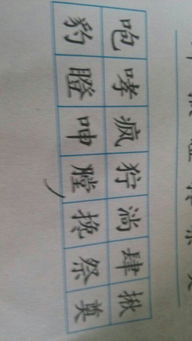 咆哮疯狞淌肆揪
豹瞪呻膛搀祭奠